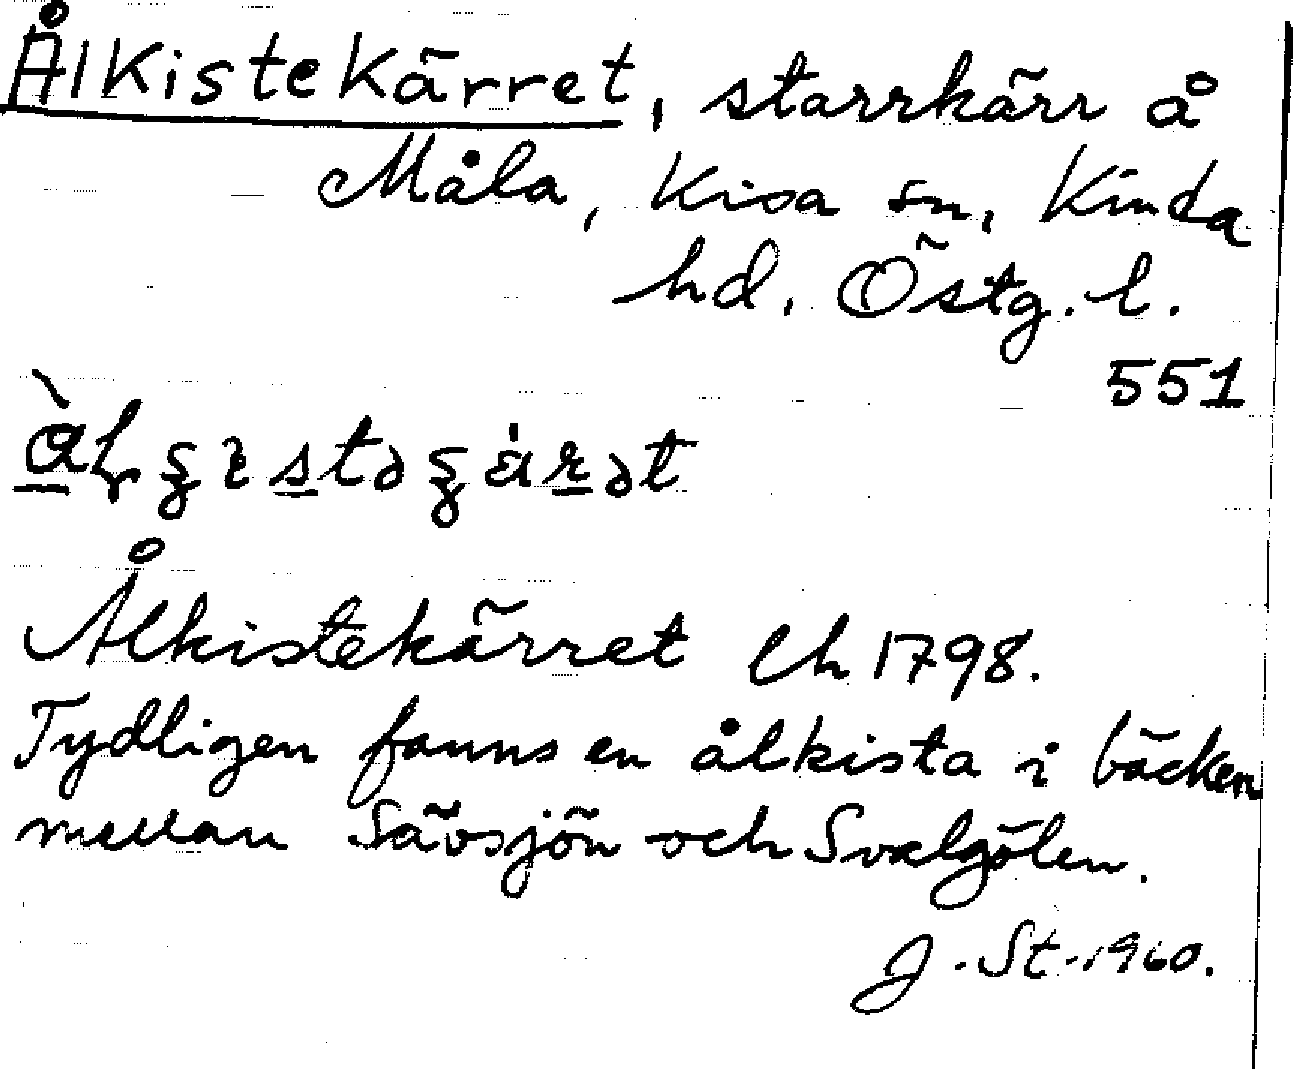 Ålkistekärret, starrkärr å
Måla, Kisa sn, Kinda
hd. Östg. l.
551
Ålkistekärret lh 1798.
Tydligen fanns en ålkista i bäcken
mellan Sävsjön och Svalgölen.
J. St. 1960.